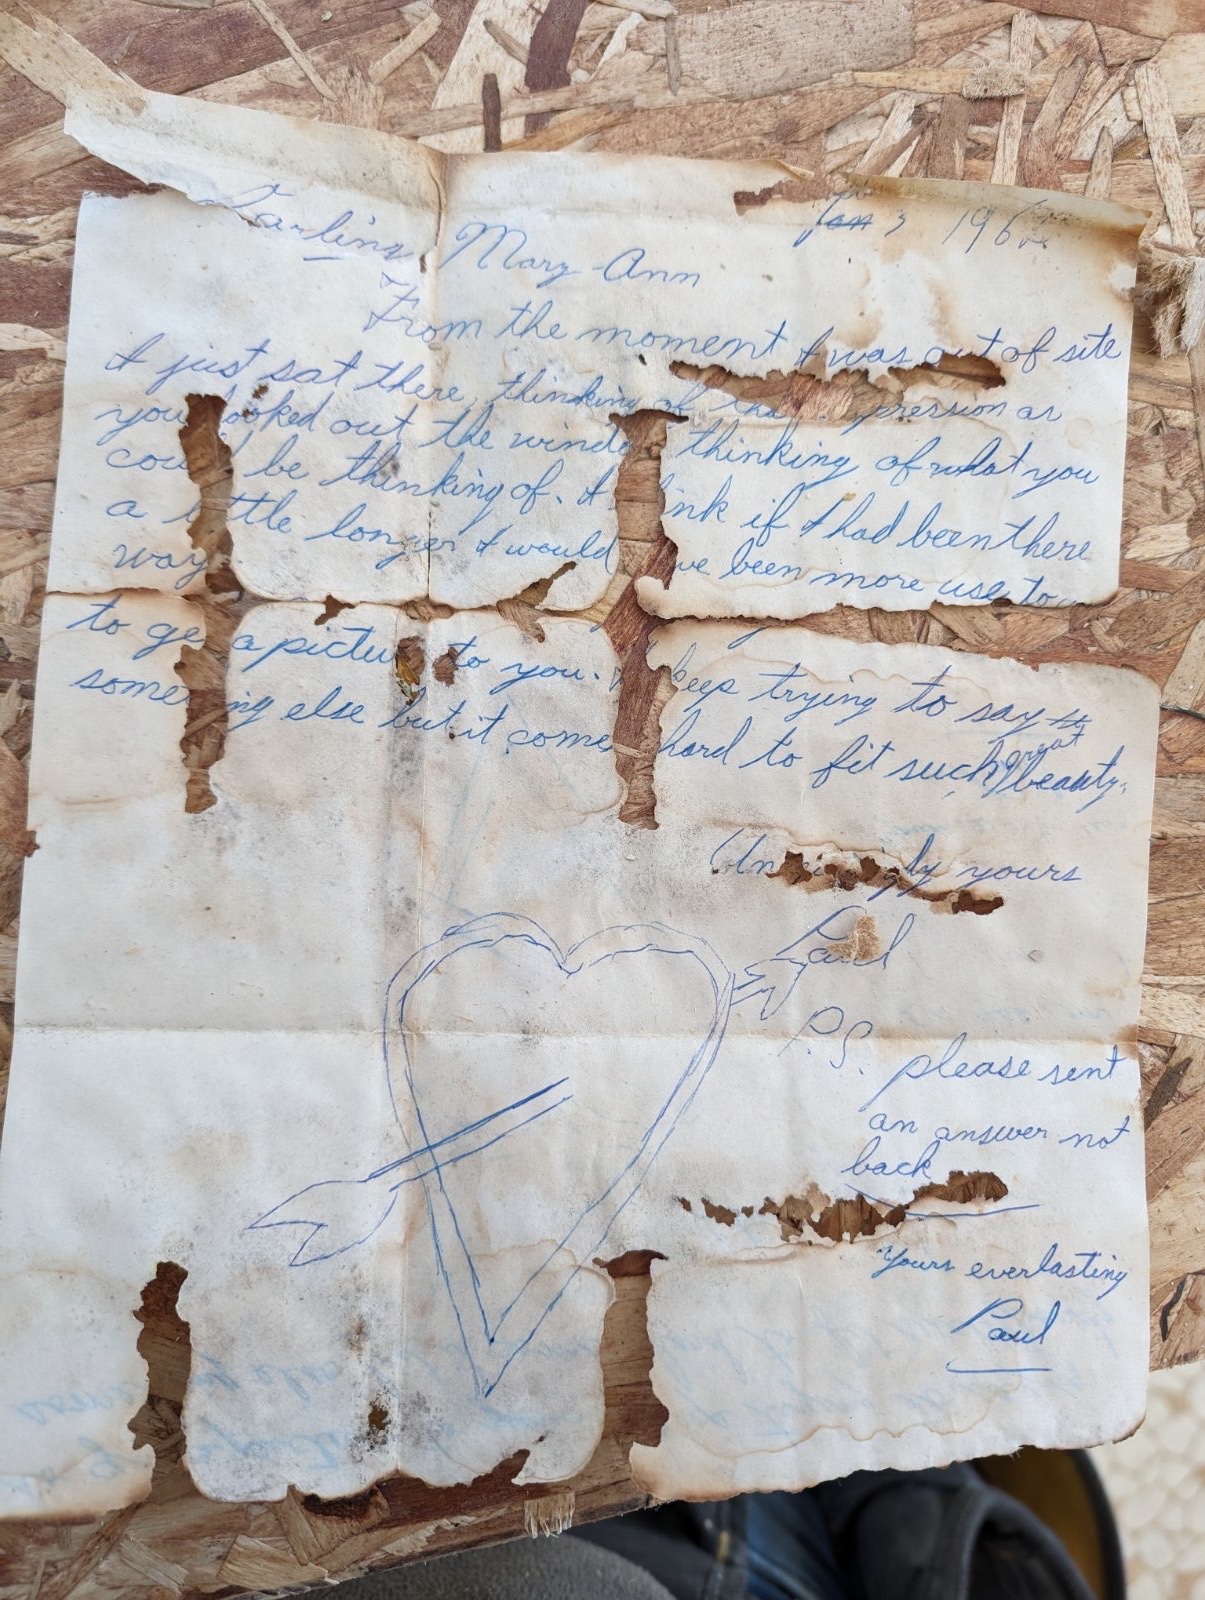 Jan 3 196
Darling Mary Ann
From the moment I was out of site
I just sat there, thinking of pression as
you looked out the windo thinking of what you
cou d be thinking of. I ink if I had been there
a ttle longer I would ve been more use to
way
to ge a pictu to you. keep trying to say
some ng else but it come hard to fit such great beauty.
ly yours
Paul
P.S. please sent
an answer not
back
Yours everlasting
Paul